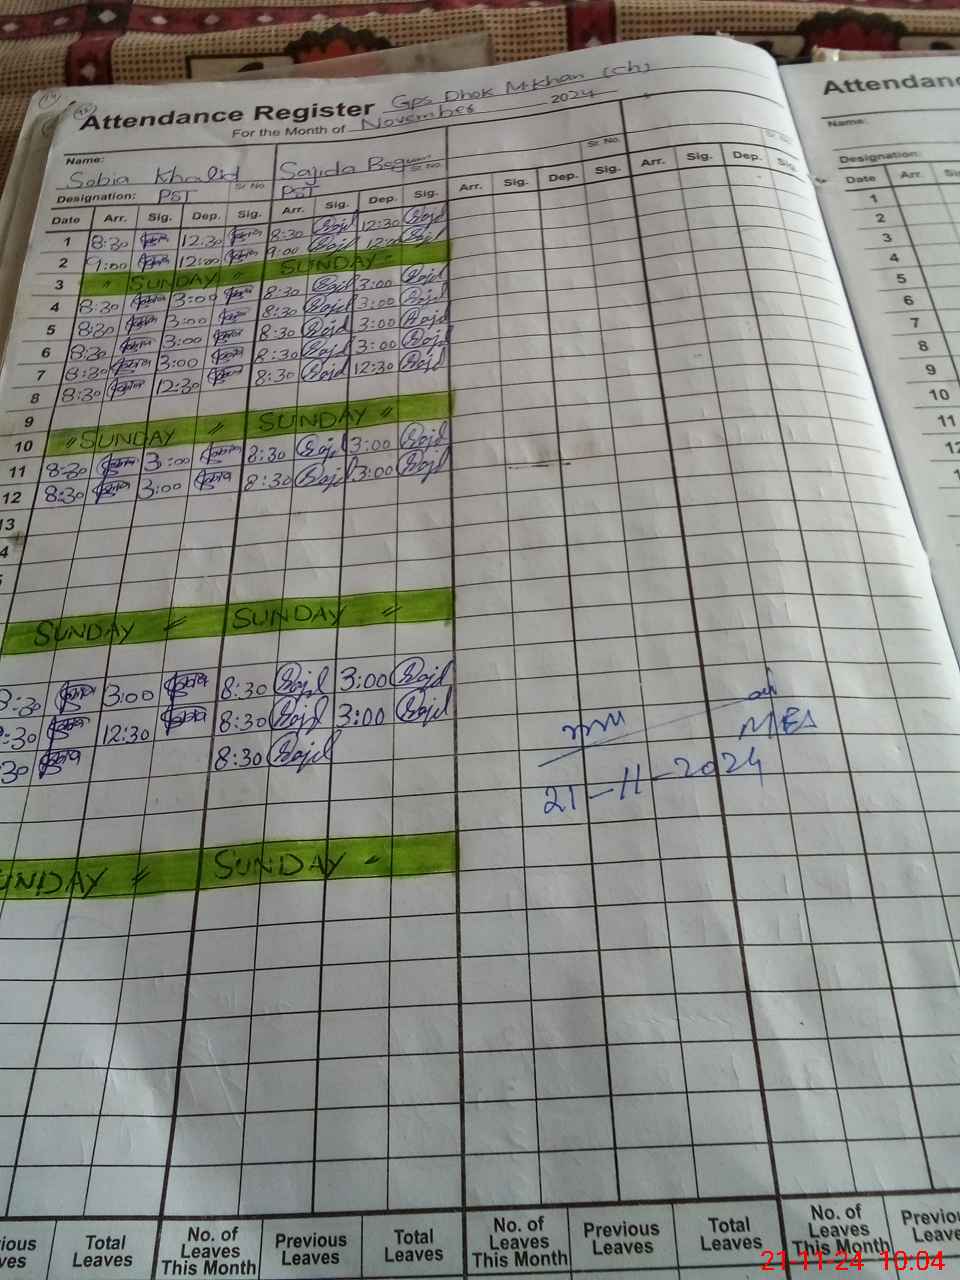 Attendance Register Gps Dhok M.Khan (ch)
For the Month of November 2024
Name: Sobia Khalid Sajida Begum
Sr No. Sr No. Sr No. Sr No.
Designation: PST PST
Date Arr. Sig. Dep. Sig. Arr. Sig. Dep. Sig. Arr. Sig. Dep. Sig. Arr. Sig. Dep. Sig.
1 8:30 12:30 8:30 Sajd 12:30 Sajd
2 9:00 12:00 9:00 Sajd 12:00 Sajd
3 " SUNDAY " SUNDAY "
4 8:30 3:00 8:30 Sajd 3:00 Sajd
5 8:30 3:00 8:30 Sajd 3:00 Sajd
6 8:30 3:00 8:30 Sajd 3:00 Sajd
7 8:30 3:00 8:30 Sajd 3:00 Sajd
8 8:30 12:30 8:30 Sajd 12:30 Sajd
9
10 " SUNDAY " SUNDAY "
11 8:30 3:00 8:30 Sajd 3:00 Sajd
12 8:30 3:00 8:30 Sajd 3:00 Sajd
13
4
5
SUNDAY " SUNDAY "
8:30 3:00 8:30 Sajd 3:00 Sajd
:30 12:30 8:30 Sajd 3:00 Sajd
30 8:30 Sajd
21-11-2024
UNDAY " SUNDAY "
ious Leaves Total Leaves No. of Leaves This Month Previous Leaves Total Leaves No. of Leaves This Month Previous Leaves Total Leaves No. of Leaves This Month Previo Leave
Attendanc
Name:
Designation:
Date Arr. Si
1
2
3
4
5
6
7
8
9
10
11
12
21-11-24 10:04